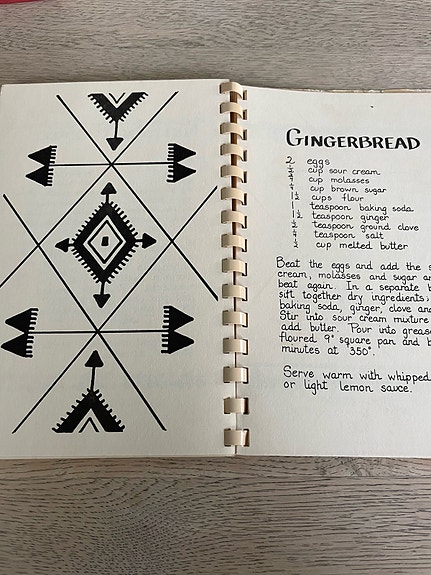 GINGERBREAD
2 eggs
cup sour cream
cup molasses
cup brown sugar
1½ cups flour
teaspoon baking soda
1½ teaspoon ginger
teaspoon ground clove
teaspoon salt
½ cup melted butter
Beat the eggs and add the s
cream, molasses and sugar an
beat again. In a separate b
sift together dry ingredients;
baking soda, ginger, clove and
Stir into sour cream mixture
add butter. Pour into grease
floured 9" square pan and b
minutes at 350°.
Serve warm with whipped
or light lemon sauce.